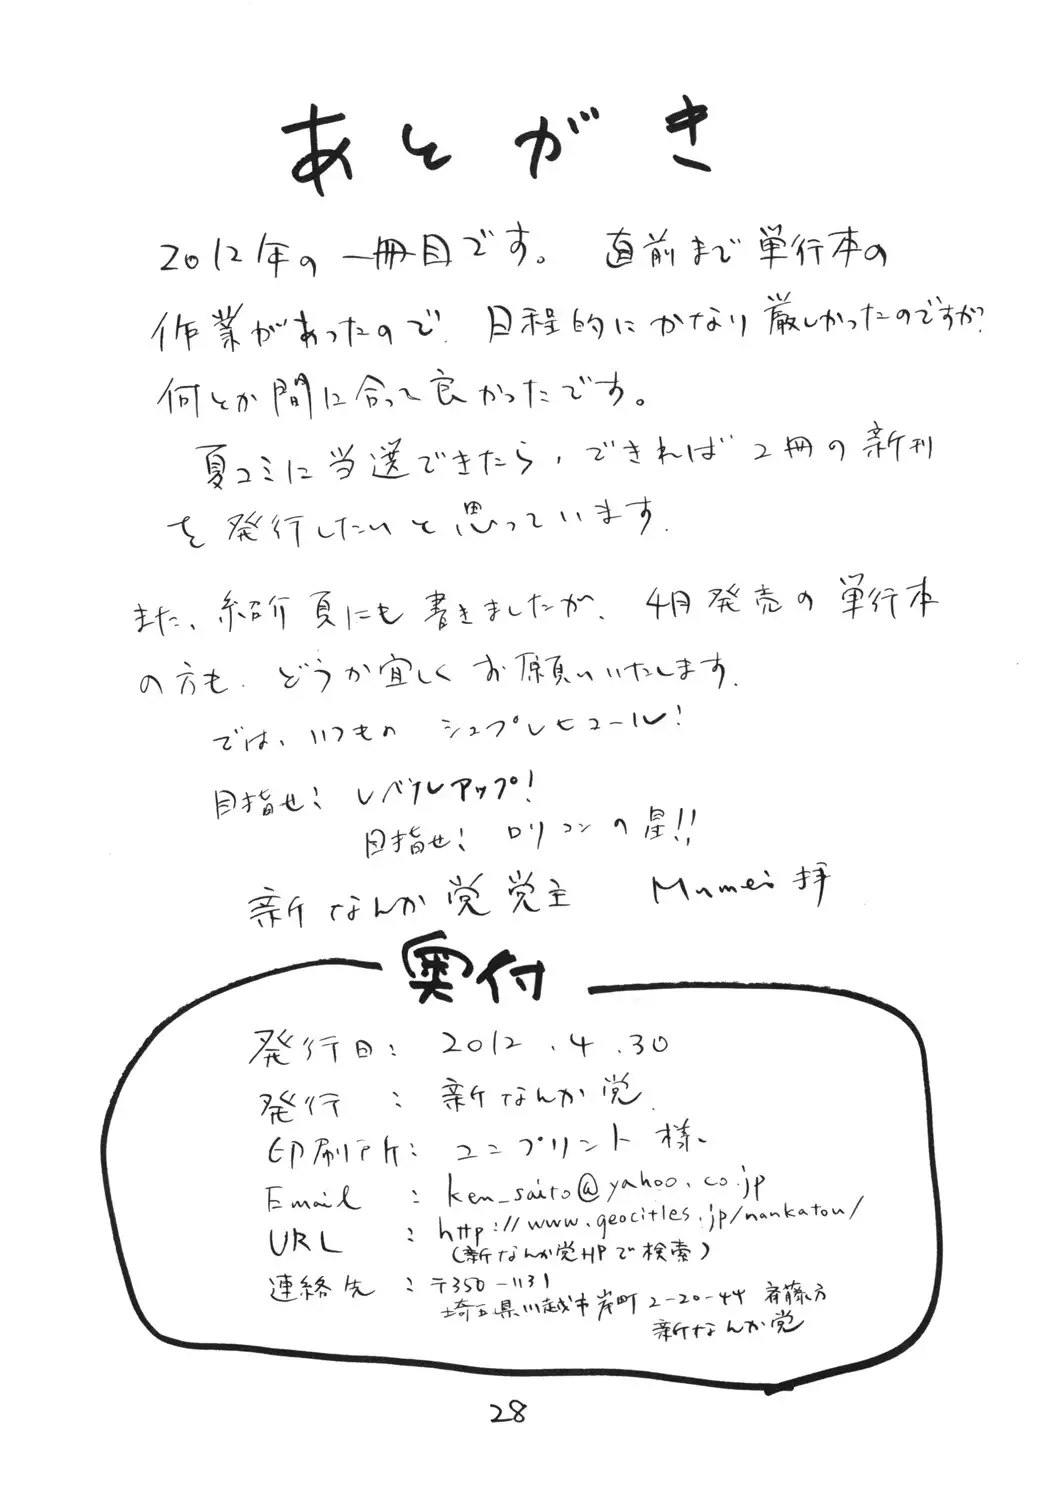 あとがき
2012年の一冊目です。 直前まで単行本の
作業があったので、日程的にかなり厳しかったのですが、
何とか間に合って良かったです。
夏コミに当選できたら、できれば2冊の新刊
を発行したいと思っています。
また、紹介頁にも書きましたが、4月発売の単行本
の方も、どうか宜しくお願いいたします。
では、いつものシュプレヒコール!
目指せ! レベルアップ!
目指せ! ロリコンの星!!
新なんか党党主 Mumei拝
奥付
発行日: 2012.4.30
発行 : 新なんか党
印刷所: ユニプリント様
Email : ken_saito@yahoo.co.jp
URL : http://www.geocities.jp/nankatou/
(新なんか党HPで検索)
連絡先 : 〒350-1131
埼玉県川越市岸町2-20-44 斉藤方
新なんか党
28